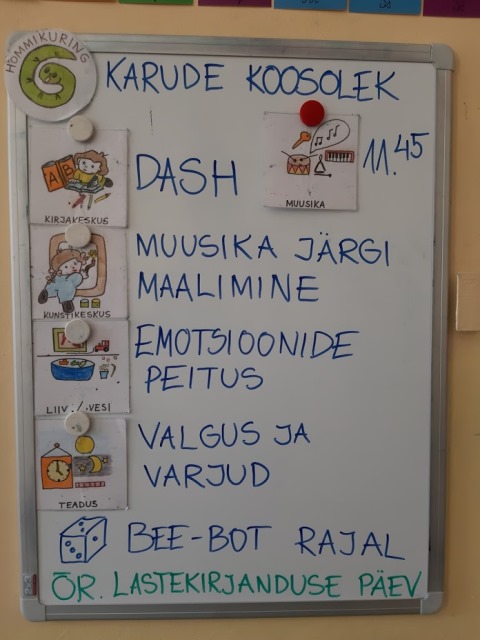 HOMMIKURING
KARUDE KOOSOLEK
DASH
KIRJAKESKUS
MUUSIKA
11.45
MUUSIKA JÄRGI
MAALIMINE
KUNSTIKESKUS
EMOTSIOONIDE
PEITUS
VESI
VALGUS JA
VARJUD
TEADUS
BEE-BOT RAJAL
ÕR. LASTEKIRJANDUSE PÄEV